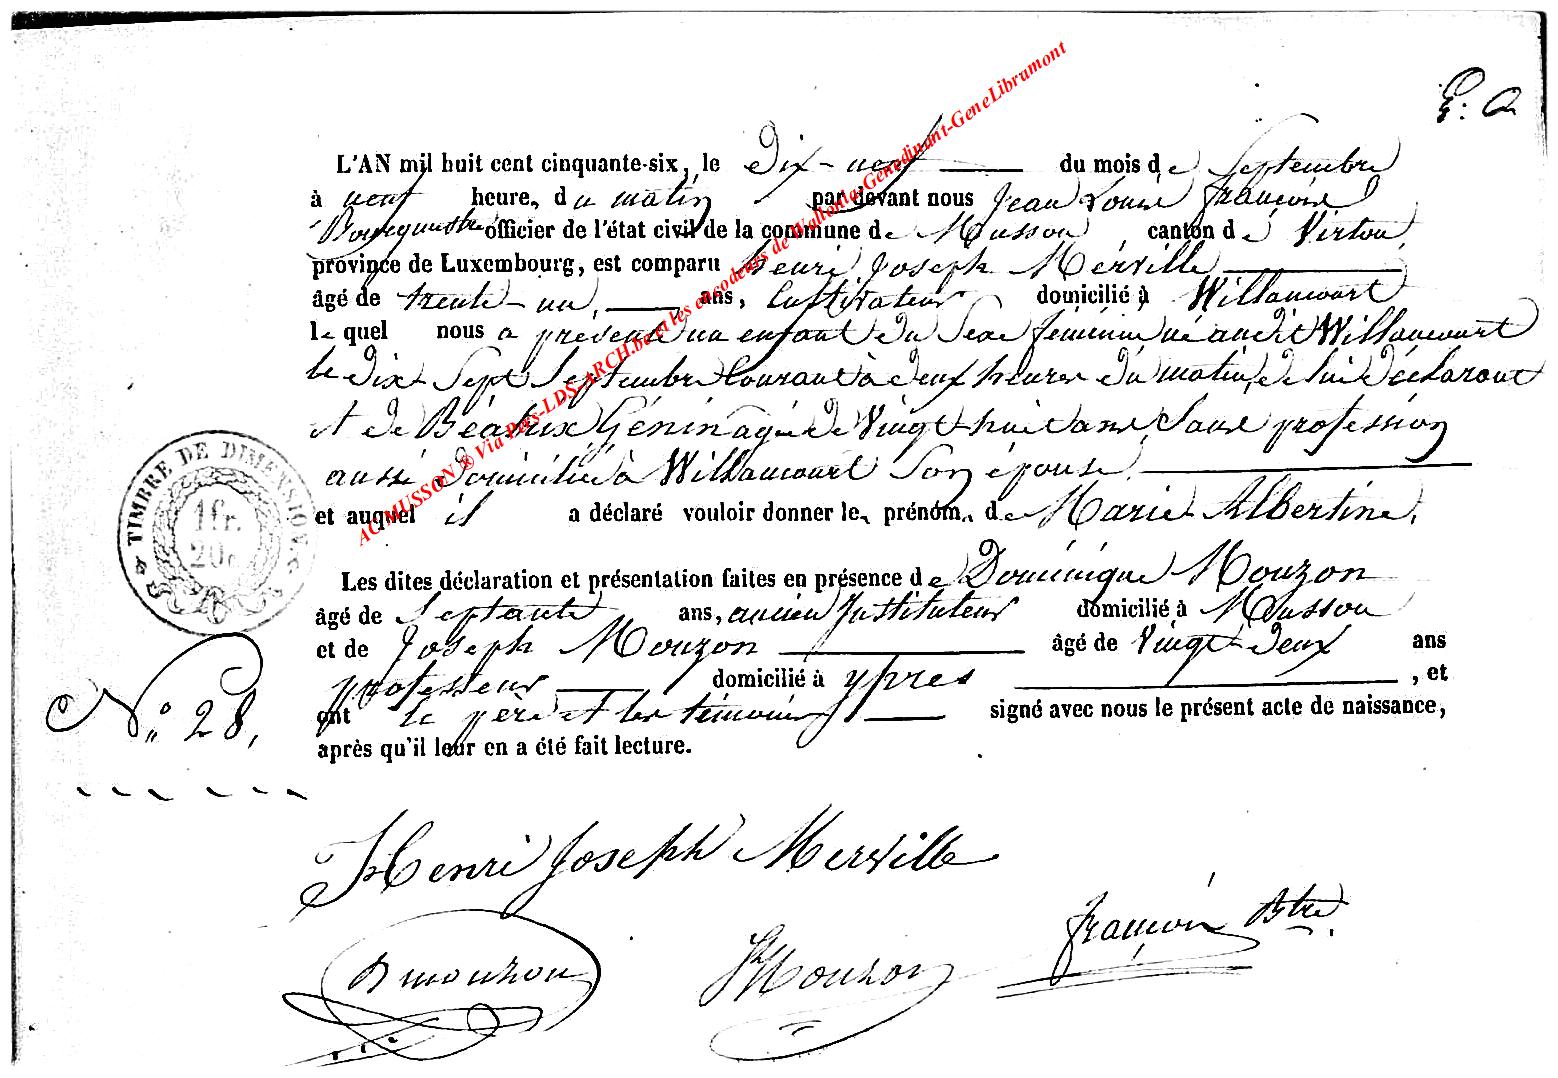 E. A
L'AN mil huit cent cinquante-six, le Dix-neuf du mois de Septembre
à neuf heure, du matin par devant nous Jean Louis François
Bourgmestre officier de l'état civil de la commune de Musson canton de Virton,
province de Luxembourg, est comparu henri Joseph Merville
âgé de trente-un, ans, Cultivateur domicilié à Willancourt
lequel nous a présenté un enfant du Sexe féminin né audit Willancourt
le dix-Sept Septembre Courant à deux heures du matin, de lui déclarant
et de Béatrix Génin agée de Vingt-huit ans Sans profession
aussi Domiciliée à Willancourt Son épouse,
et auquel il a déclaré vouloir donner les prénoms de Marie-Albertine.
Les dites déclaration et présentation faites en présence de Dominique Mouzon
âgé de Septante ans, ancien Instituteur domicilié à Musson
et de Joseph Mouzon âgé de Vingt-deux ans
professeur domicilié à ypres , et
ont le père et les témoins signé avec nous le présent acte de naissance,
après qu'il leur en a été fait lecture.
TIMBRE DE DIMENSION.
1 fr.
20c
N° 28,
Henri Joseph Merville
D mouzon
J Mouzon
François Btre.
AC MUSSON ® Via Pros-LDS-ARCH.be et les encodeurs de Wallonia-Genedinant-GeneLibramont